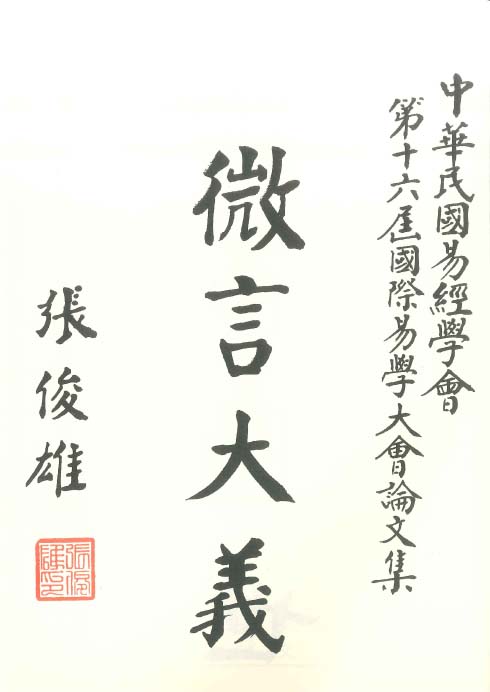 中華民國易經學會
第十六屆國際易學大會論文集
微言大義
張俊雄
張俊雄印